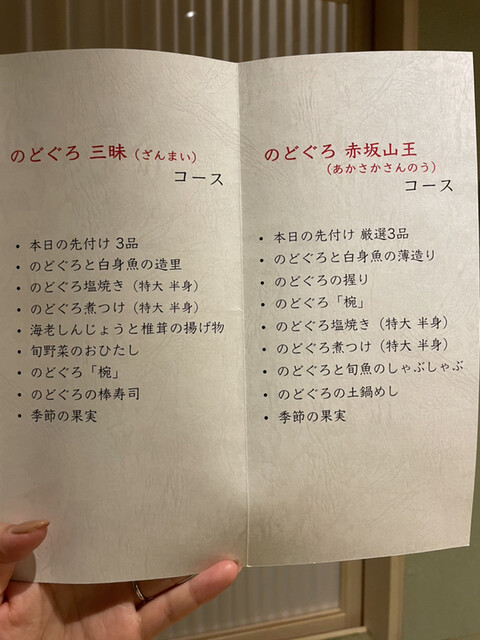 のどぐろ 三昧（ざんまい）
コース
・本日の先付け 3品
・のどぐろと白身魚の造里
・のどぐろ塩焼き（特大 半身）
・のどぐろ煮つけ（特大 半身）
・海老しんじょうと椎茸の揚げ物
・旬野菜のおひたし
・のどぐろ「椀」
・のどぐろの棒寿司
・季節の果実
のどぐろ 赤坂山王
（あかさかさんのう）
コース
・本日の先付け 厳選3品
・のどぐろと白身魚の薄造り
・のどぐろの握り
・のどぐろ「椀」
・のどぐろ塩焼き（特大 半身）
・のどぐろ煮つけ（特大 半身）
・のどぐろと旬魚のしゃぶしゃぶ
・のどぐろの土鍋めし
・季節の果実